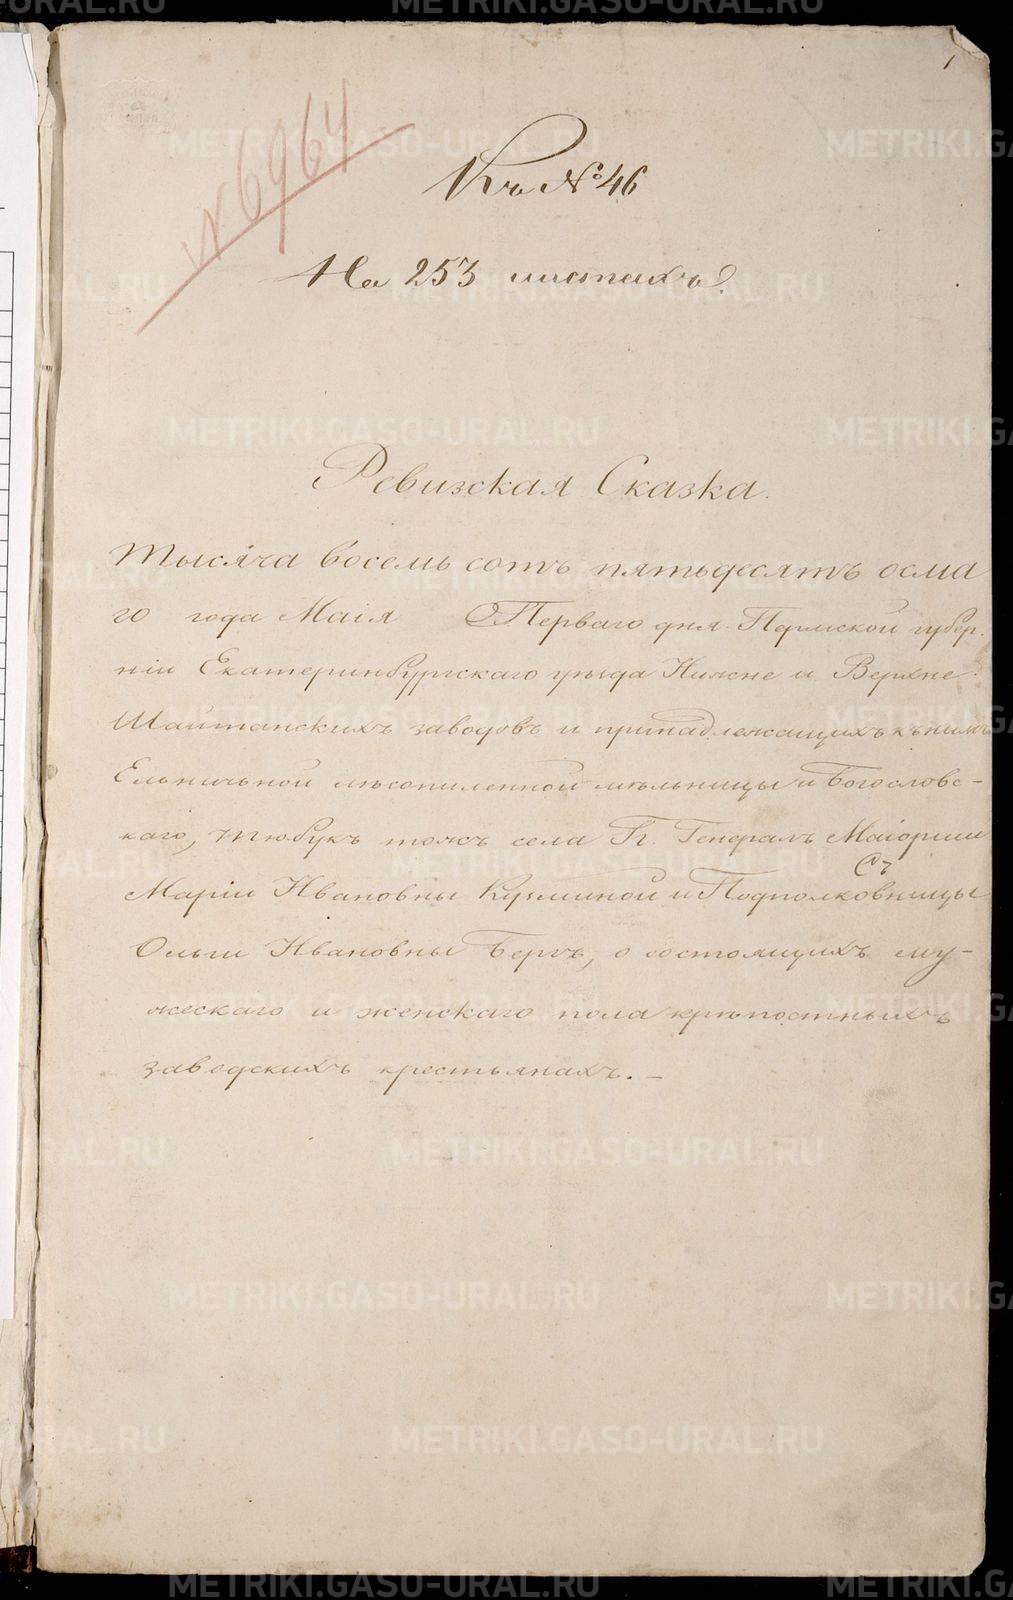 1
№ 6964
Къ № 46
На 253 листахъ.
Ревизская Сказка.
Тысяча восемь сотъ пятьдесятъ осма
го года Маія Перваго дня Пермской губер.
ніи Екатеринбургскаго уѣзда Нижне и Верхне
Шайтанскихъ заводовъ и принадлежащихъ къ нимъ
Ельничной лѣсопиленной мѣльницы и Богословс-
каго, Тюбукъ тожъ села Гг. Генералъ Маіорши
Съ
Маріи Ивановны Кузминой и Подполковницы
Ольги Ивановны Бергъ, о состоящихъ му-
жескаго и женскаго пола крѣпостныхъ
заводскихъ крестьянахъ. —
METRIKI.GASO-URAL.RU